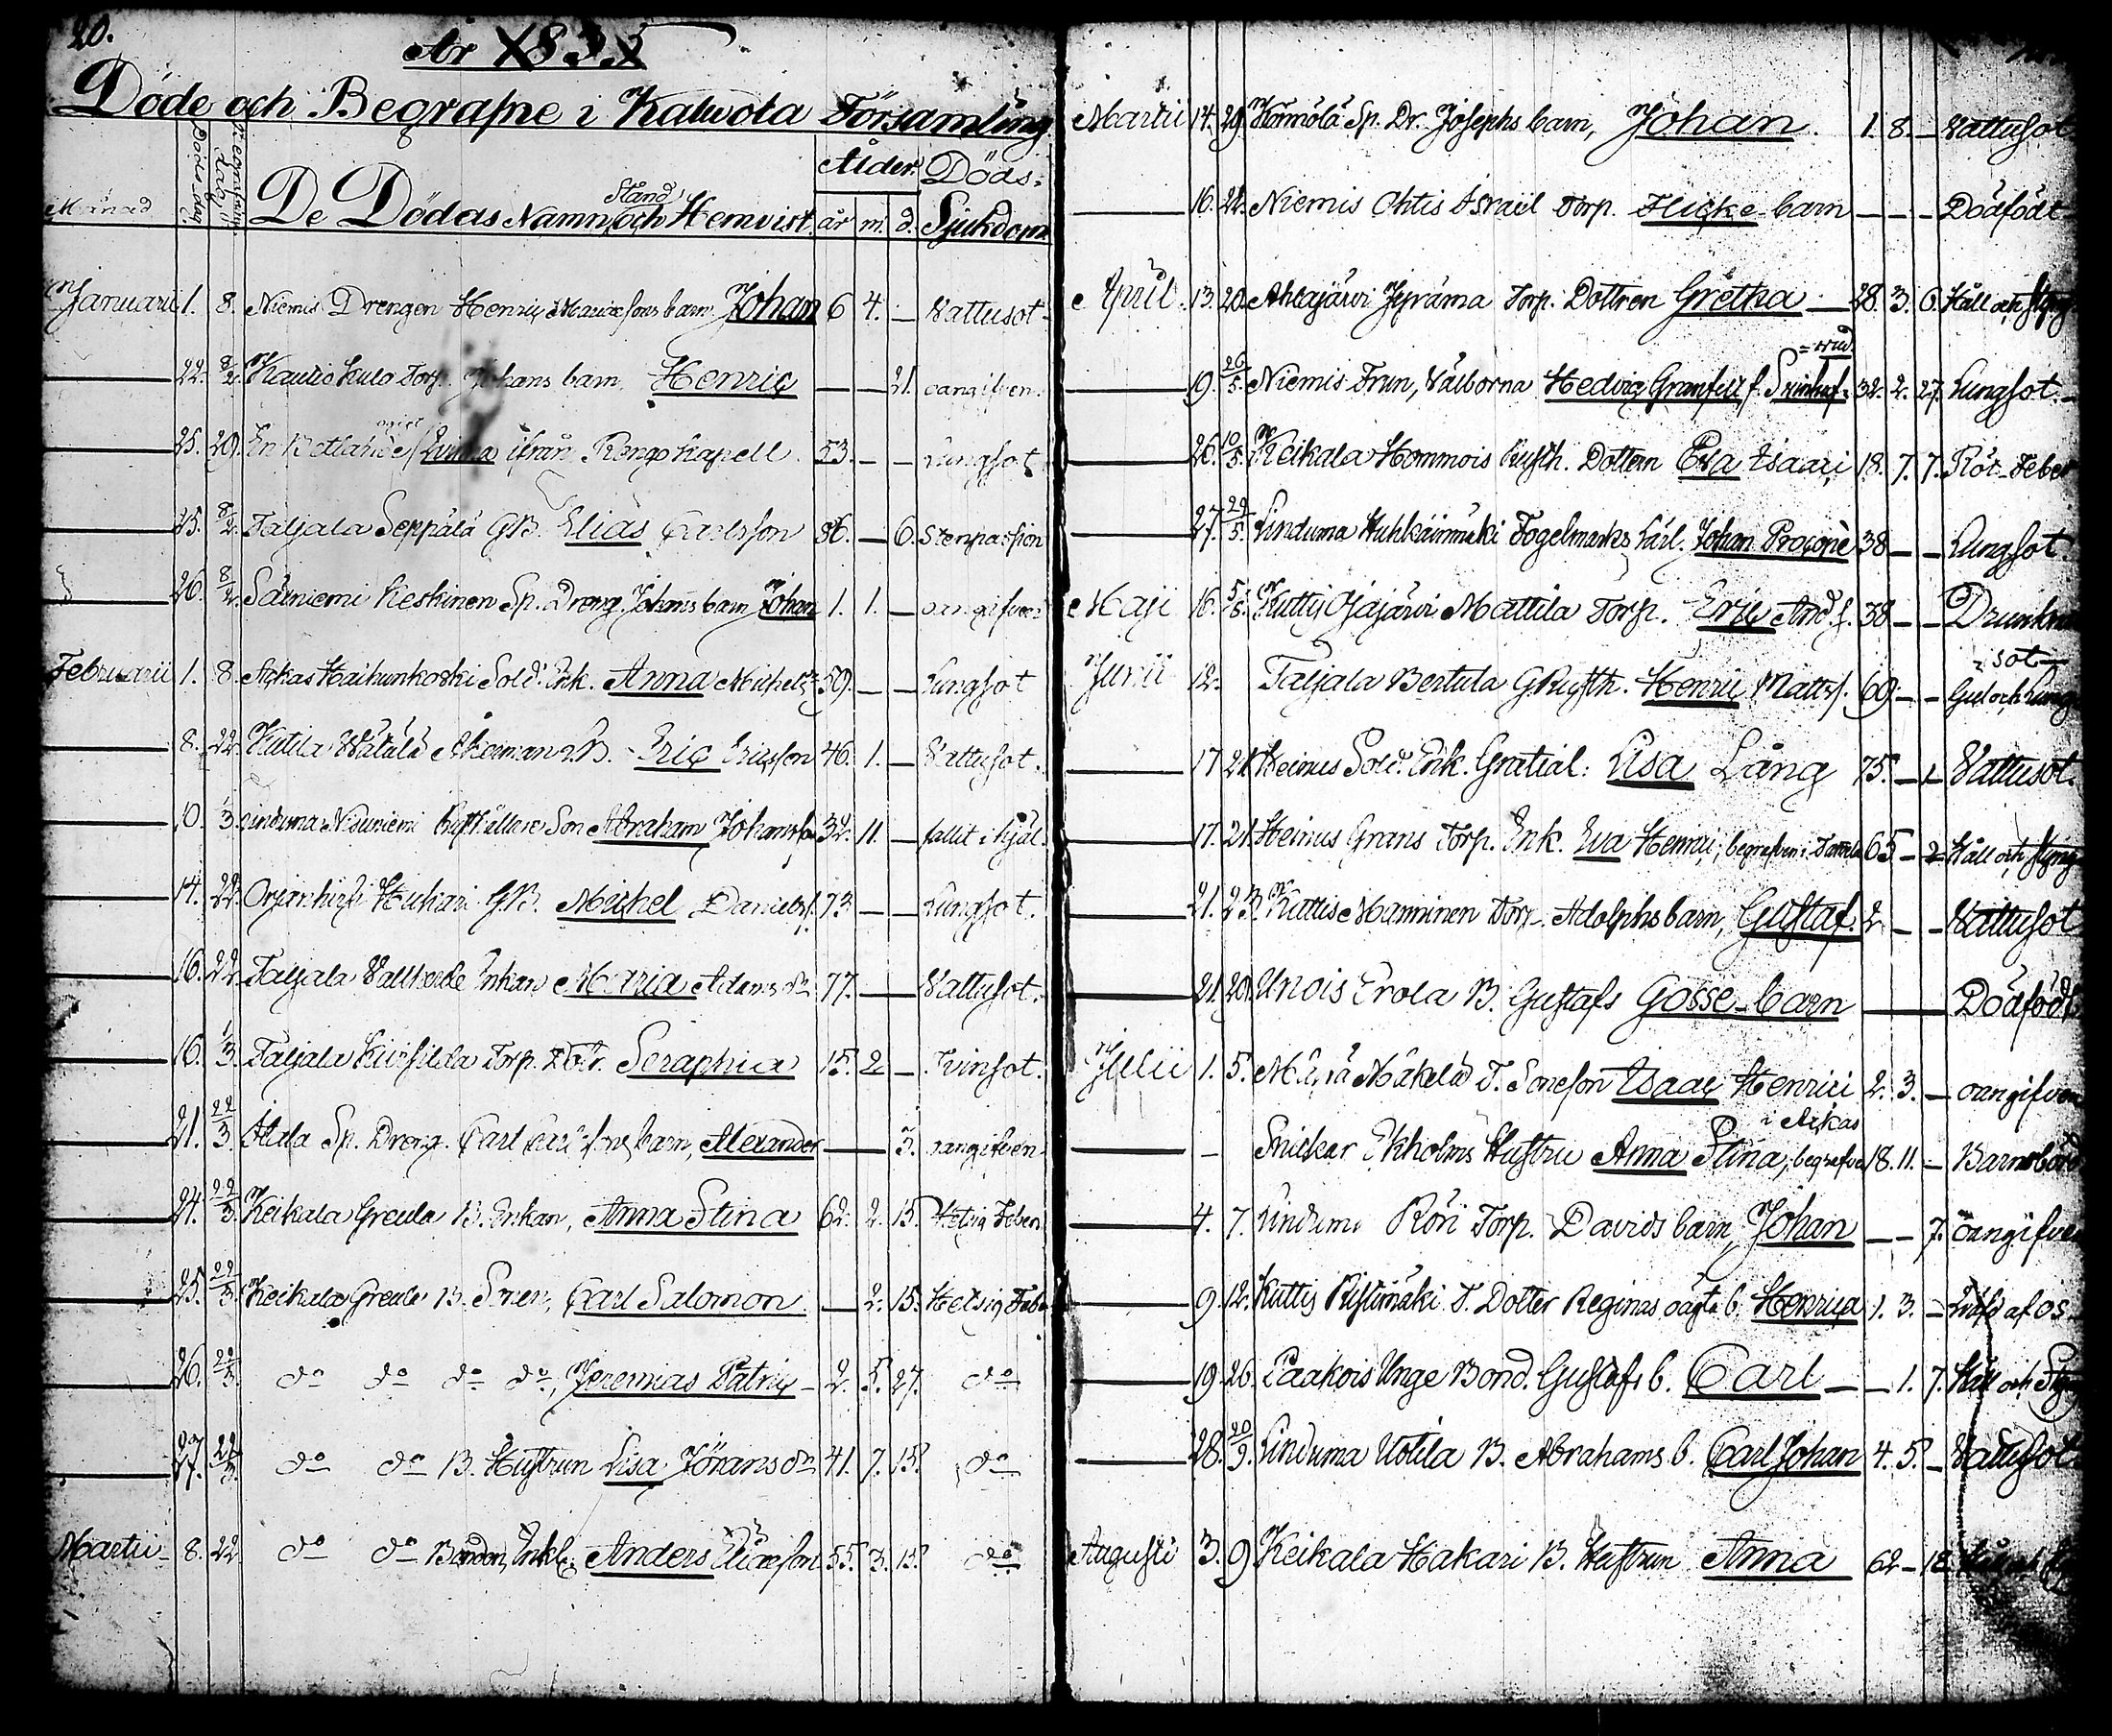 20.
År 1835
Döde och Begrafne i Kalwola Församling
Månad Döde dag De Dödas Namn, Stånd och Hemvist. Ålder. år m. d. Döds-Sjukdom
Januarii 1. 8. Niemis Drengen Henric barn Johan 6 4. — Vattusot
22. 8/2. Kauris Torp. Johans barn, Henric — — 21. oangifven.
25. 29. En ifrån Rengo Kapell. 53. — — Lungsot
25. 8/2. Taljala Seppälä GB. Elias Carlsson 86. — 6. Stenpassion
26. 8/2. Särniemi Keskinen Sp. Dreng. Johans barn Johan 1. 1. — oangifven
Februarii 1. 8. Sold. Enk. Anna Michelsd. 59. — — Lungsot
8. 22. Kutila Eric Ericsson 46. 1. — Vattusot.
10. 3. Son Abraham Johansson 32. 11. — fallit ihjäl.
14. 22. GB. Michel Daniels. 73. — — Lungsot.
16. 22. Taljala Enkan Maria Adams dr 77. — — Vattusot.
16. 1/3. Taljala Torp. Dotr. Seraphia 15. 2. — Tvinsot.
21. 22/3. Sp. Dreng. Carl barn, Alexander — — 5. oangifven
24. 22/3. Keikala Greula B. Enkan, Anna Stina 62. 2. 15. Hetsig Feber.
25. 22/3. Keikala Greula B. Sonen, Carl Salomon — 2. 15. Hetsig Feber
26. 22/3. do do do do, Jeremias Patric — 2. 5. 27. do
27. 22/3. do do B. Hustrun Lisa Jörans dr 41. 7. 15. do
Martii 8. 22. do do Bonden, Enkl. Anders 55. 3. 15. do
Martii 14. 29. Sp. Dr. Josephs barn, Johan. 1. 8. — Vattusot
16. 22. Niemis Ohtis Israel Torp. Flicke-barn — — — Dödfödt
April. 13. 20. Ahlajärvi Jyräma Torp. Dottren Gretha — 28. 3. 6. Håll och Styng
19. 26/5. Niemis Frun, Välborna Hedvig Granfelt f. Svinhuf-vud. 32. 2. 27. Lungsot.
26. 10/5. Keikala Hommois Rusth. Dottern Eva Isaaci 18. 7. 7. Röt-Feber
27. 24/5. Linduma Huhkainmäki Fogelmarks Karl. Johan Procopé 38 — — Lungsot
Maji 16. 5/6. Kuttis Ojajärvi Mattila Torp. Eric And.s. 38 — —
Junii 12. Taljala Bertula G.Rusth. Henric Matts. 60 — — Gul och Lung-sot
17 21. Heinus Sold. Enk. Gratial: Lisa Lång 75. — 1 Vattusot.
17. 21. Heinus Grans Torp. Enk. Eva Henrici, begrafven i 65 — 2 Håll och Styng
21. 23. Kuttis Manninen Torp. Adolphs barn, Gustaf. 2. — — Vattusot
21. 20. Unois Erola B. Gustafs Gosse-barn — Dödfödt
Julii 1. 5. Mäkelä T. Sonson Isaac Henrici 2. 3. — oangifven
— Snickar Ekholms Hustru Anna Stina, begrafven i Ackas 18. 11. — Barnsbörd
4. 7. Linduma Röri Torp. Davids barn, Johan — — 7. oangifven
9 12. Kuttis Ristimäki T. Dotter Reginas oägta b. Henrica 1. 3. — af os
19. 26. Paakois Unge Bond. Gustafs b. Carl — — 1. 7. Håll och Styng
28. 20/9. Linduma Uotila B. Abrahams b. Carl Johan 4. 5. — Vattusot
Augusti 3. 9 Keikala Hakari B. Hustrun Anna 62 — 18